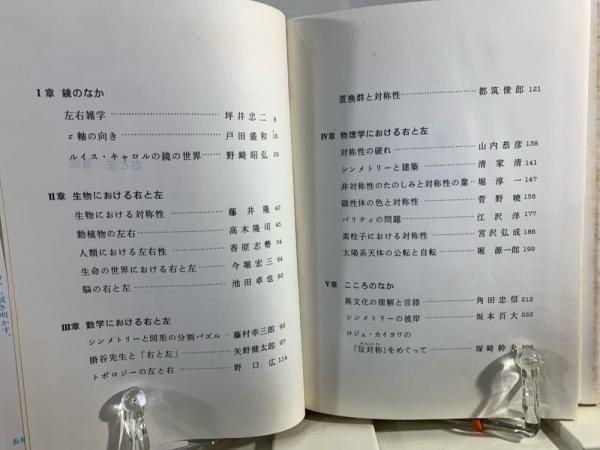 I章 鏡のなか
左右雑学 坪井忠二 8
x 軸の向き 戸田盛和 18
ルイス・キャロルの鏡の世界 野崎昭弘 29
II章 生物における右と左
生物における対称性 藤井隆 40
動植物の左右 高木隆司 45
人類における左右性 香原志勢 54
生命の世界における右と左 今堀宏三 64
脳の右と左 池田卓也 82
III章 数学における右と左
シンメトリーと図形の分割パズル 藤村幸三郎 92
掛谷先生と「右と左」 矢野健太郎 97
トポロジーの左と右 野口広 114
置換群と対称性 都筑俊郎 121
IV章 物理学における右と左
対称性の破れ 山内恭彦 138
シンメトリーと建築 清家清 141
非対称性のたのしみと対称性の業 堀淳一 147
磁性体の色と対称性 菅野暁 156
パリティの問題 江沢洋 177
素粒子における対称性 宮沢弘成 188
太陽系天体の公転と自転 堀源一郎 199
V章 こころのなか
異文化の理解と言語 角田忠信 212
シンメトリーの彼岸 坂本百大 222
ロジェ・カイヨワの
「反対称」をめぐって 塚崎幹夫
き明かす。